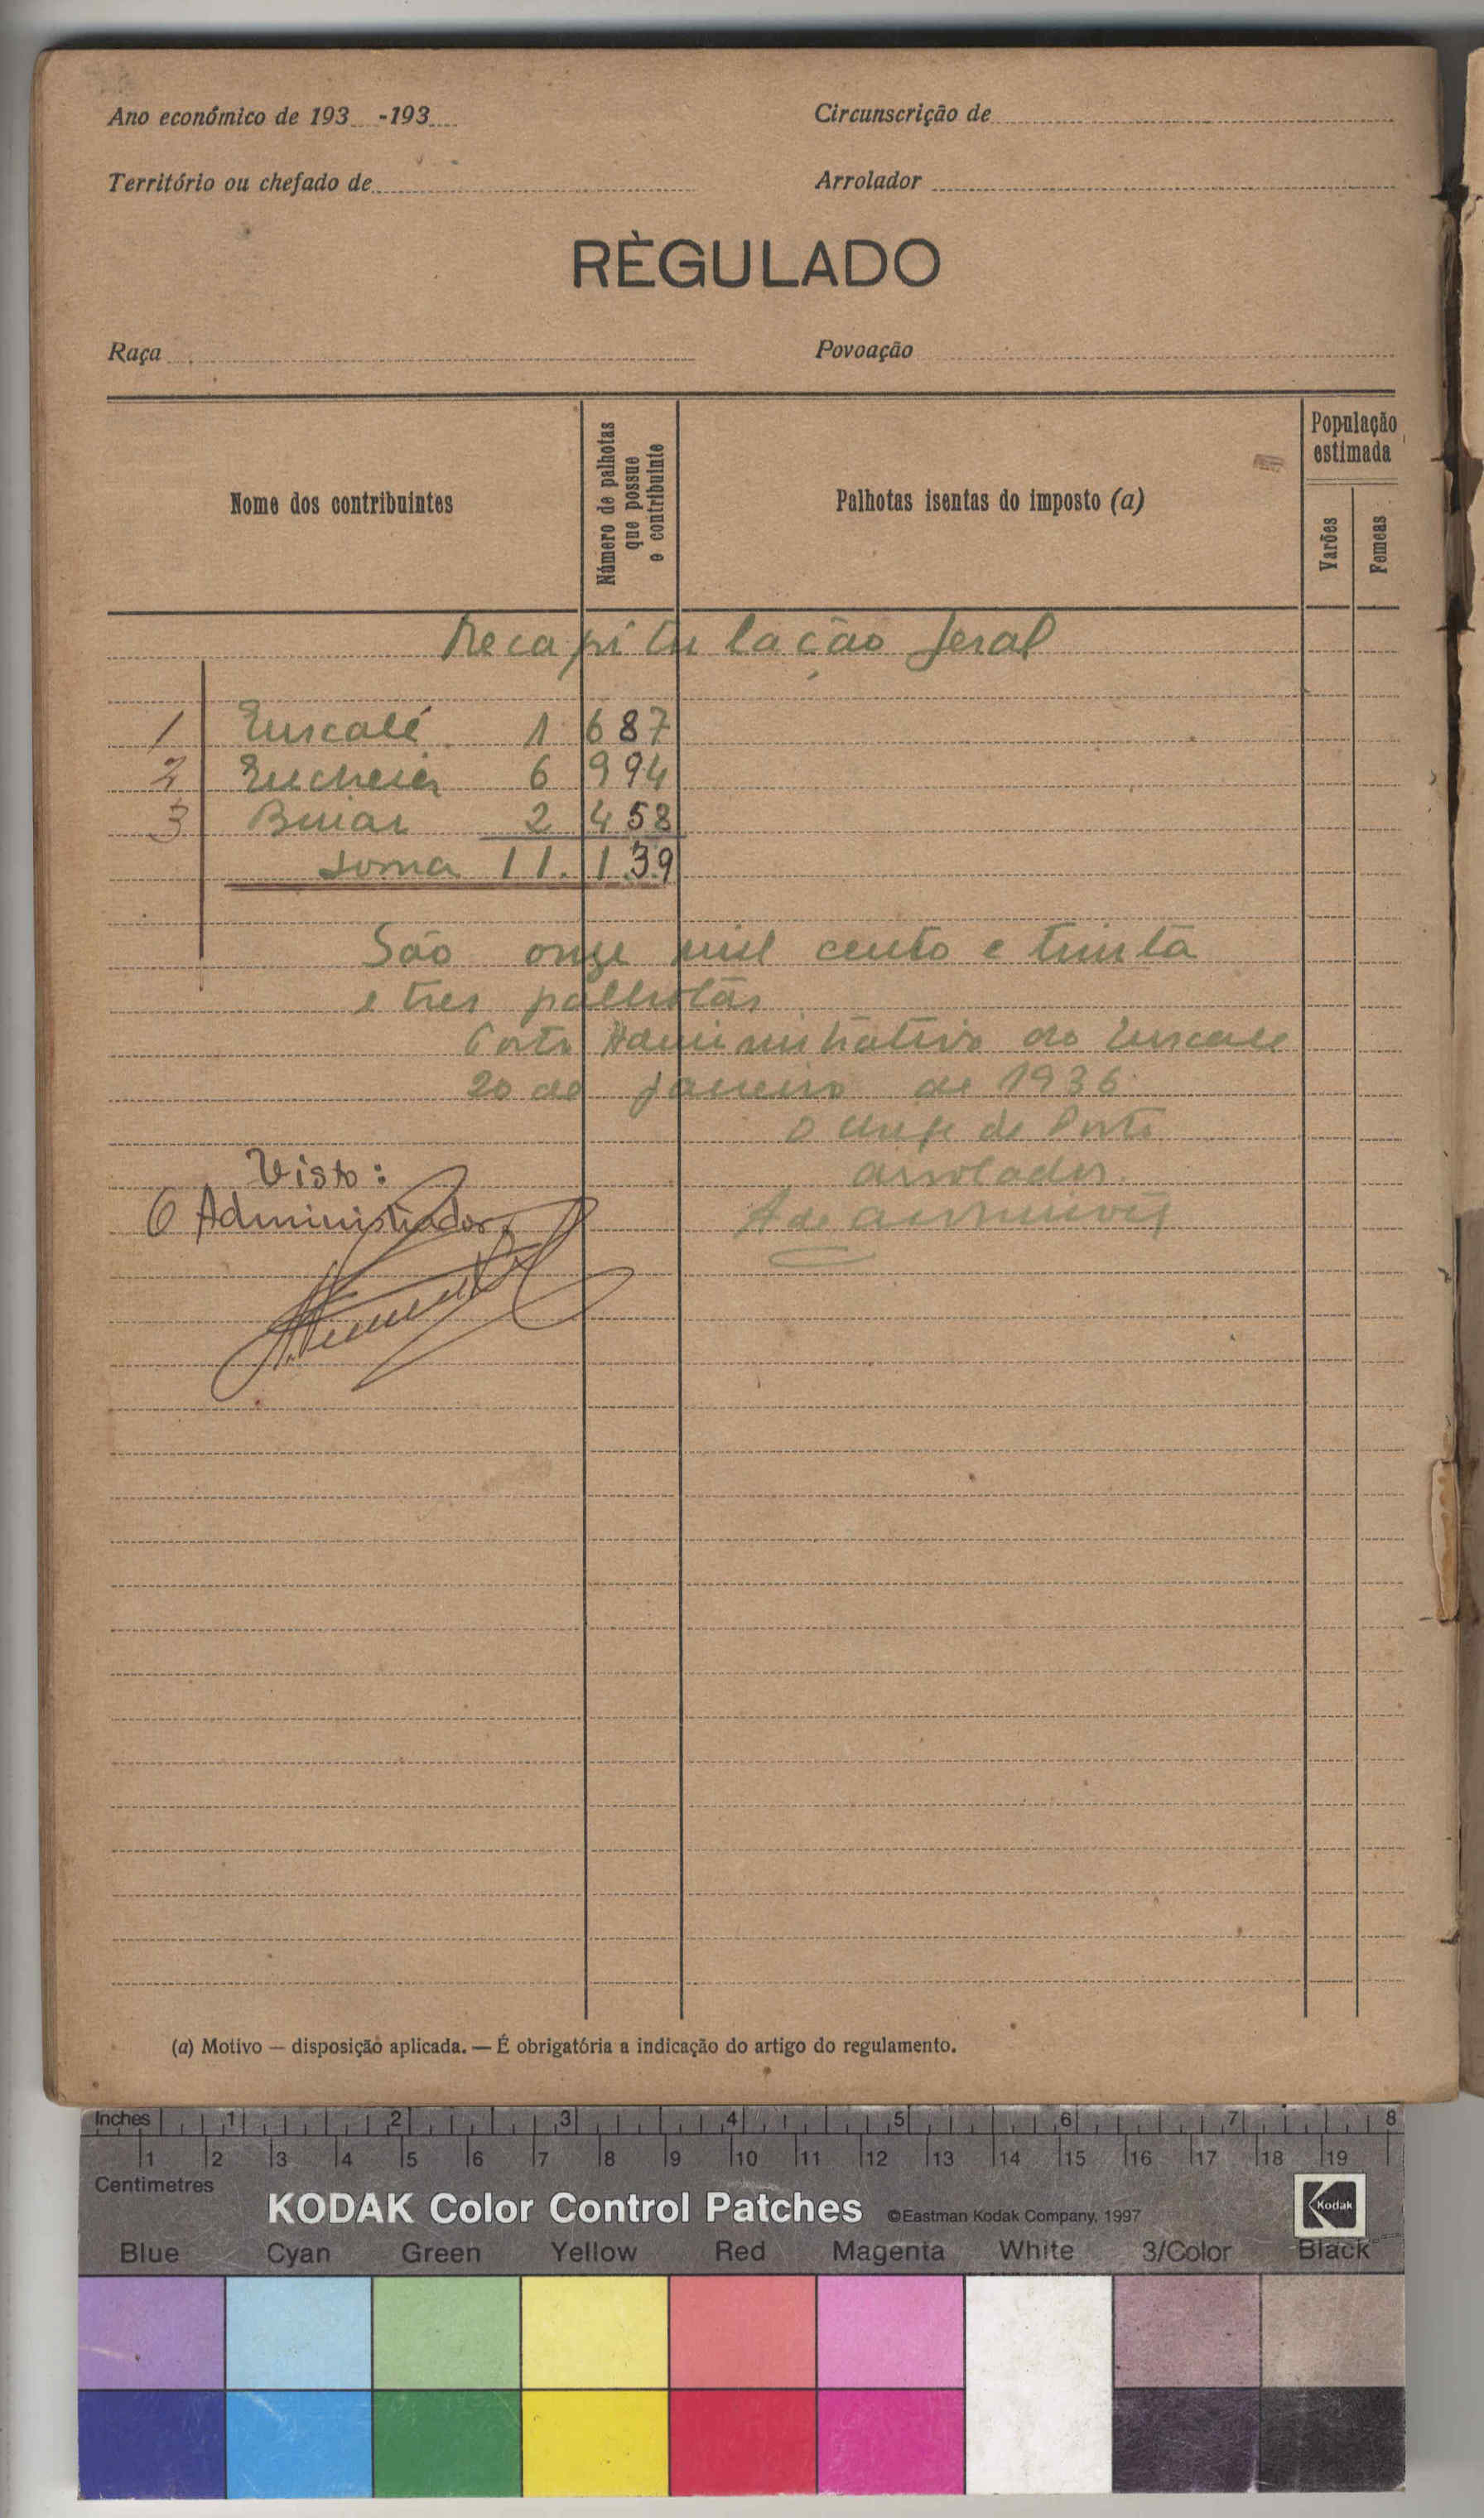 Ano económico de 193 -193
Circunscrição de
Território ou chefado de
Arrolador
RÈGULADO
Raça
Povoação
Nome dos contribuintes
Número de palhotas que possue o contribuinte
Palhotas isentas do imposto (a)
População estimada
Varões
Femeas
Recapitulação Geral
1 Enxalé 1 687
2 Encheia 6 994
3 Biriar 2 458
Soma 11.139
São onze mil cento e trinta
e tres palhotas
Posto Administrativo do Enxale
20 de Janeiro de 1936
O Chefe de Posto
arrolador
Visto:
O Administrador,
(a) Motivo — disposição aplicada. — É obrigatória a indicação do artigo do regulamento.
Inches 1 2 3 4 5 6 7 8
1 2 3 4 5 6 7 8 9 10 11 12 13 14 15 16 17 18 19
Centimetres
KODAK Color Control Patches ©Eastman Kodak Company, 1997 Kodak
Blue Cyan Green Yellow Red Magenta White 3/Color Black